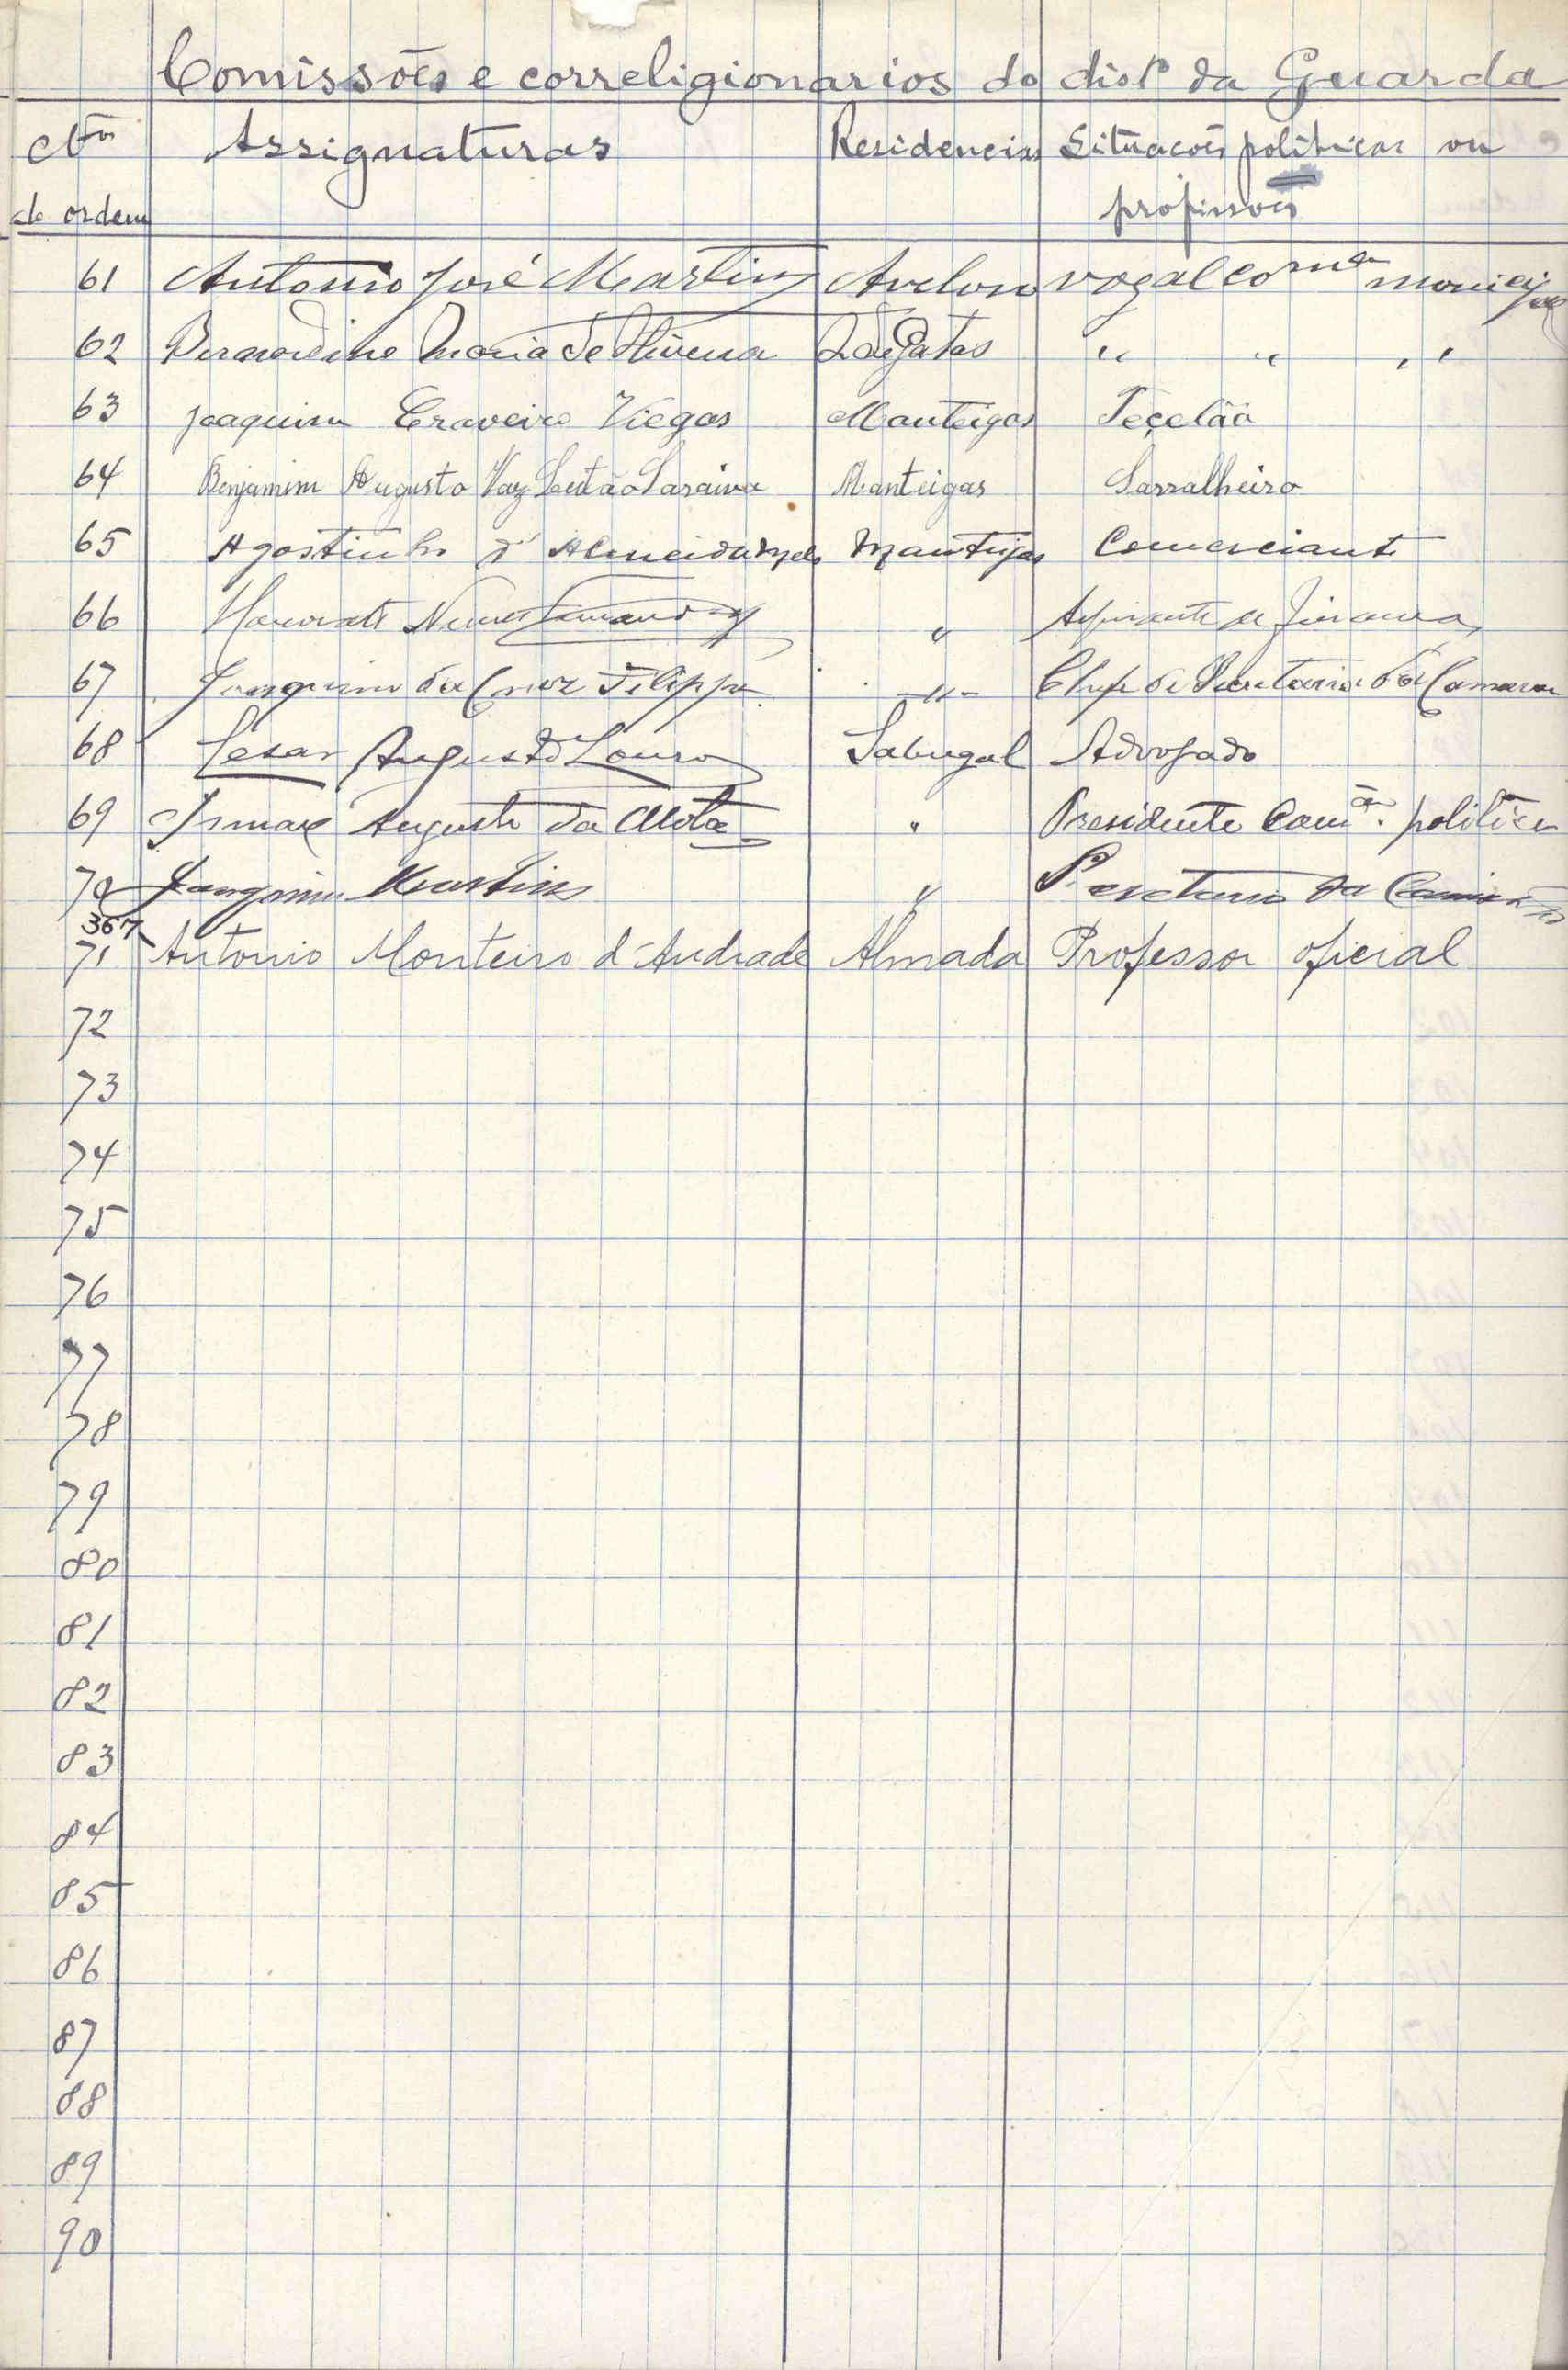 Comissões e correligionarios do dist.º da Guarda
Nos Assignaturas Residencias Situacões politicas ou
de ordem profissões
61 Antonio José Martins Avelons vogal comm monicipal
62 Bernardino Maria de Oliveira " " "
63 Joaquim Craveiro Viegas Manteigas Teçelão
64 Benjamim Augusto Vaz Leitão Saraiva Manteigas Sarralheiro
65 Agostinho d'Almeida Manteigas Comerciante
66 Nunes Fernandes " Aspirante de Finanças
67 Joaquim da Cruz Filippe -"- Chefe de Secretaria da Camara
68 Cesar Augusto Louro Sabugal Advogado
69 Ismael Augusto da Mota " Presidente Comão. politica
70 Joaquim Martins " Secretario da
367
71 Antonio Monteiro d'Andrade Almada Professor oficial
72
73
74
75
76
77
78
79
80
81
82
83
84
85
86
87
88
89
90